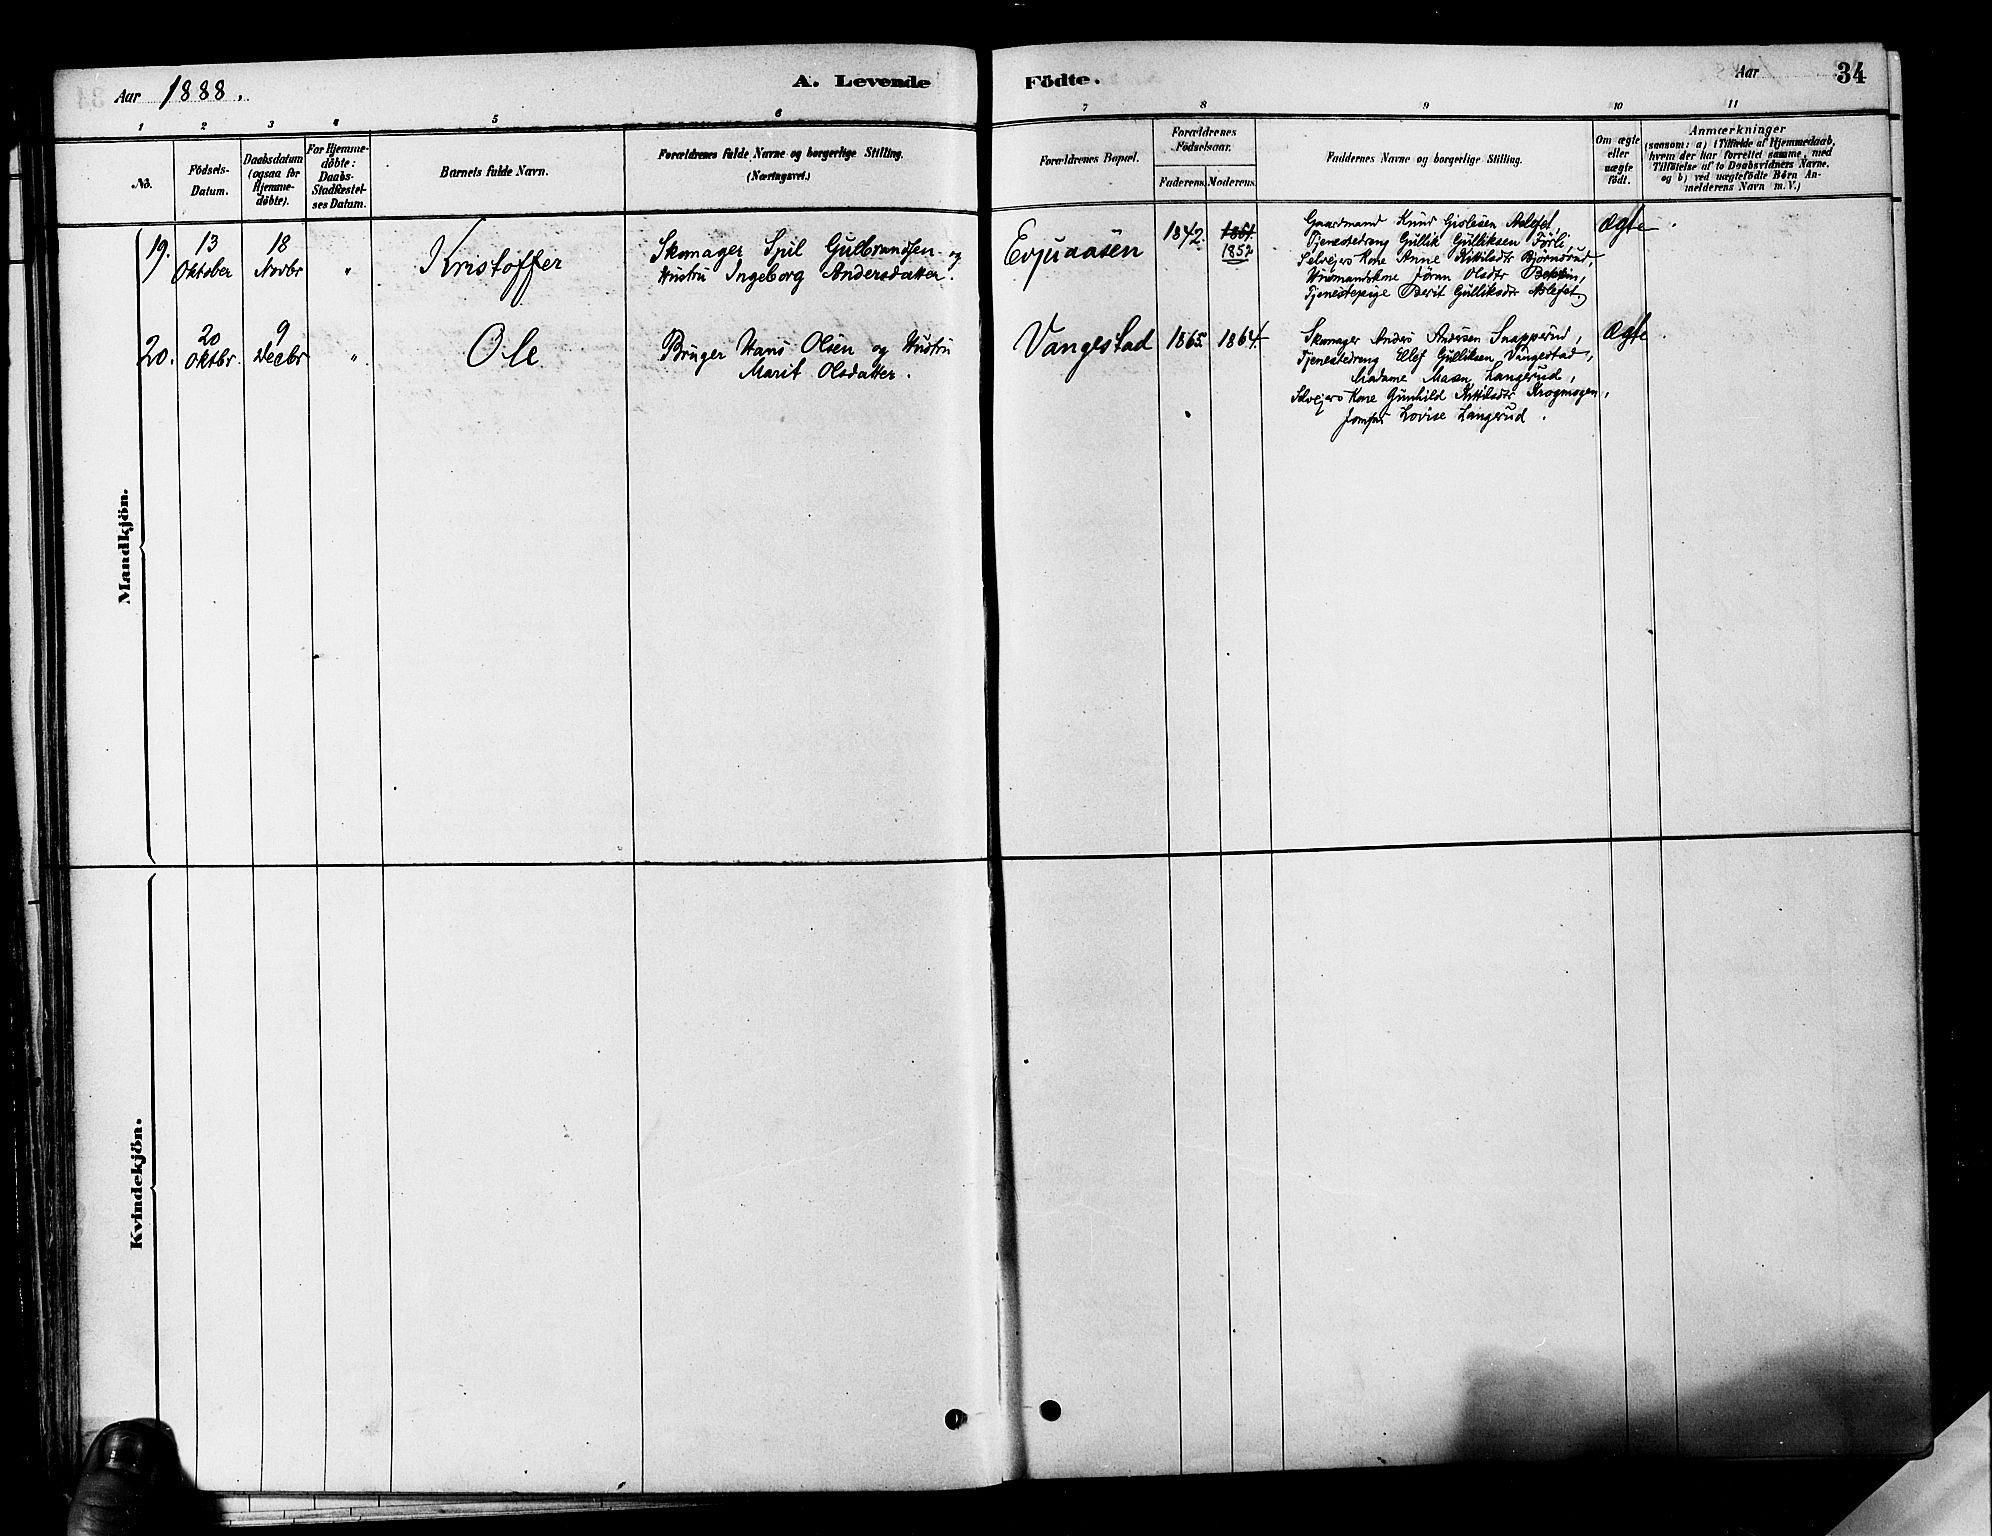 Aar 1888.
A. Levende
Födte.
Aar
34
1 2 3 4 5 6 7 8 9 10 11
No.
Födsels-
Datum.
Daabsdatum
(ogsaa for
Hjemme-
döbte).
For Hjemme-
döbte:
Daabs-
Stadfæstel-
ses Datum.
Barnets fulde Navn.
Forældrenes fulde Navne og borgerlige Stilling.
(Næringsvei.)
Forældrenes Bopæl.
Forældrenes
Födselsaar.
Faderens. Moderens.
Faddernes Navne og borgerlige Stilling.
Om ægte
eller
uægte
født.
Anmærkninger
(saasom: a) i Tilfælde af Hjemmedaab,
hvem der har forrettet samme, med
Tilföielse af to Daabsvidners Navne.
og b) ved uægtefödte Börn An-
melderens Navn m. V.)
Mandkjön.
19.
13
Oktober
18
Novbr
"
Kristoffer
Skomager Spil Gulbrandsen og
Hustru Ingeborg Andersdatter.
Evjuaasen
1842.
1851.
1852
Gaardmand Knud Gislesen Aslefet,
Tjenestedreng Gullik Gulliksen Förli,
Selvejers Kone Anne Kittilsdtr Björndrud,
Husmandskone Jöran Olsdtr
Tjenestepige Berit Gulliksdtr Aslefet.
ægte
20.
20
Oktbr.
9
Decbr
"
Ole
Bruger Hans Olsen og Hustru
Marit Olsdatter.
Vangestad
1865.
1864.
Skomager Anders Andersen Snapperud,
Tjenestedreng Ellef Gulliksen Vangestad,
Madame Maren Langerud,
Selvejers Kone Gunhild Kittilsdtr Krogmogen,
Jomfru Lovise Langerud.
ægte.
Kvindekjön.